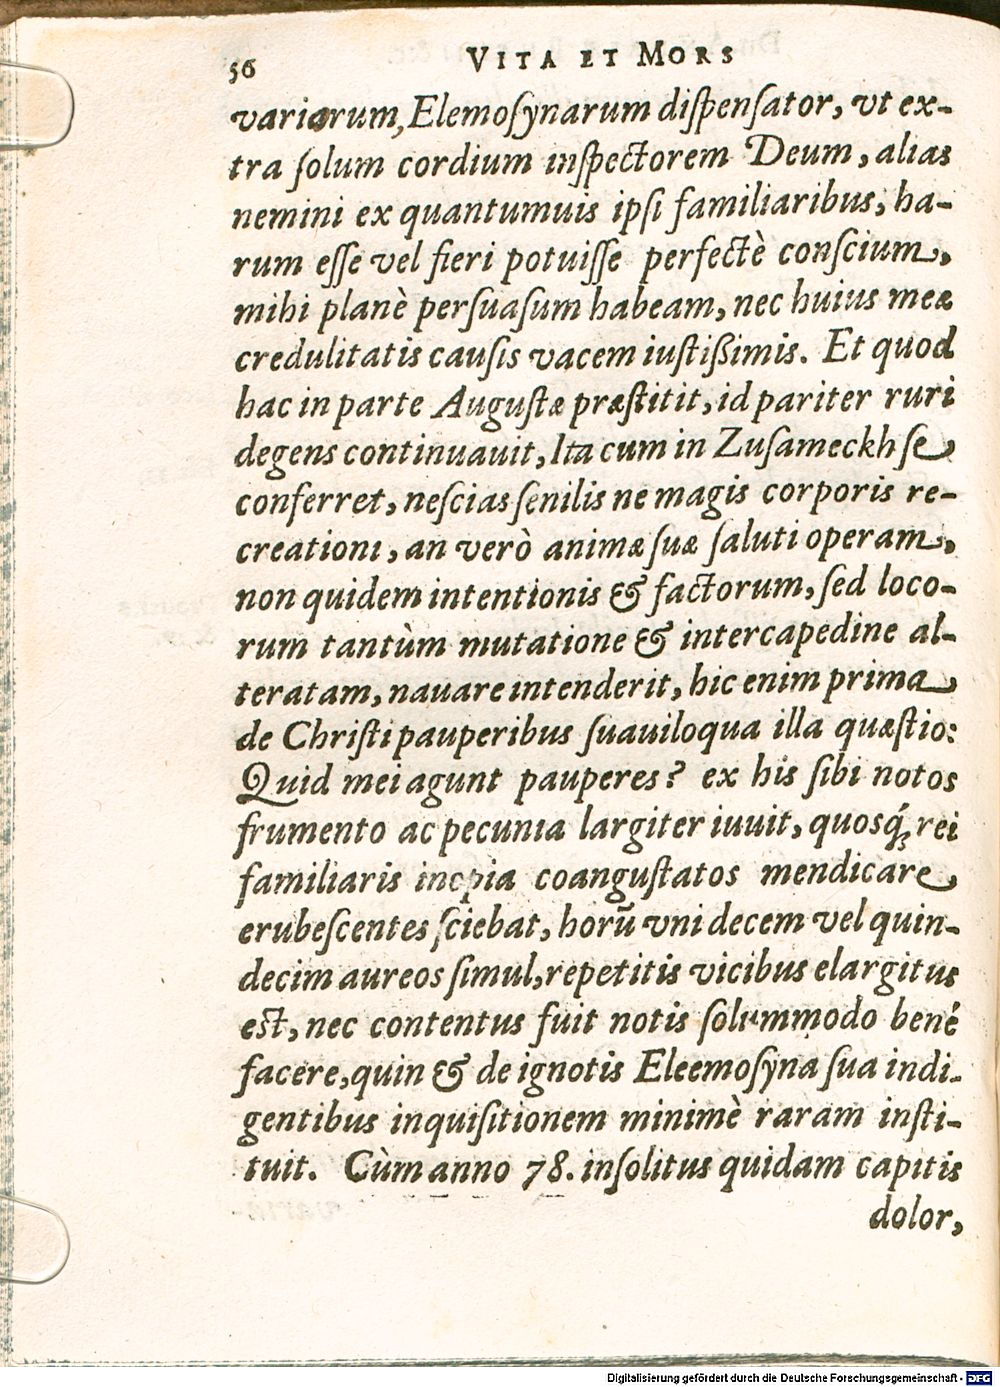 56 VITA ET MORS
variarum, Elemoſynarum diſpenſator, vt ex-
tra ſolum cordium inſpectorem Deum, alias
nemini ex quantumuis ipſi familiaribus, ha-
rum eſſe vel fieri potuiſſe perfectè conſcium,
mihi planè perſuaſum habeam, nec huius meæ
credulitatis cauſis vacem iuſtißimis. Et quod
hac in parte Auguſtæ præſtitit, id pariter ruri
degens continuauit, Ita cum in Zuſameckh ſe
conferret, neſcias ſenilis ne magis corporis re-
creationi, an verò animæ ſuæ ſaluti operam,
non quidem intentionis & factorum, ſed loco-
rum tantùm mutatione & intercapedine al-
teratam, nauare intenderit, hic enim prima
de Chriſti pauperibus ſuauiloqua illa quæſtio:
Quid mei agunt pauperes? ex his ſibi notos
frumento ac pecunia largiter iuuit, quosq́; rei
familiaris inopia coanguſtatos mendicare
erubeſcentes ſciebat, horũ vni decem vel quin-
decim aureos ſimul, repetitis vicibus elargitus
eſt, nec contentus fuit notis ſolummodo bené
facere, quin & de ignotis Eleemoſyna ſua indi-
gentibus inquiſitionem minimè raram inſti-
tuit. Cùm anno 78. inſolitus quidam capitis
dolor,
Digitalisierung gefördert durch die Deutsche Forschungsgemeinschaft - DFG